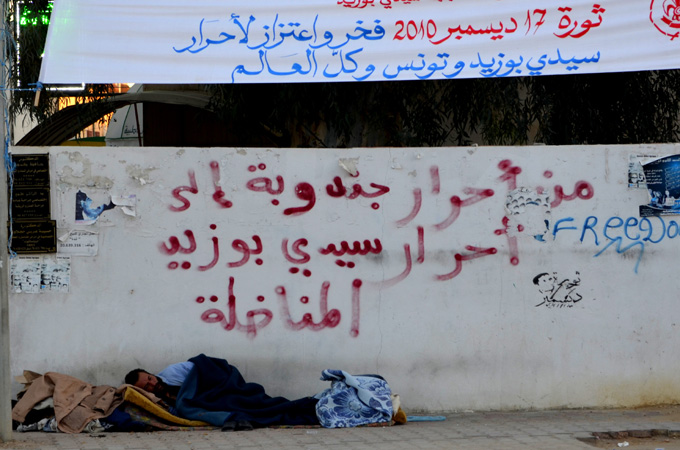 سيدي بوزيد
ثورة 17 ديسمبر 2010 فخر واعتزاز لأحرار
سيدي بوزيد وتونس وكل العالم
من أحرار جندوبة إلى
أحرار سيدي بوزيد
المناضلة
FREEDO
ديسمبر